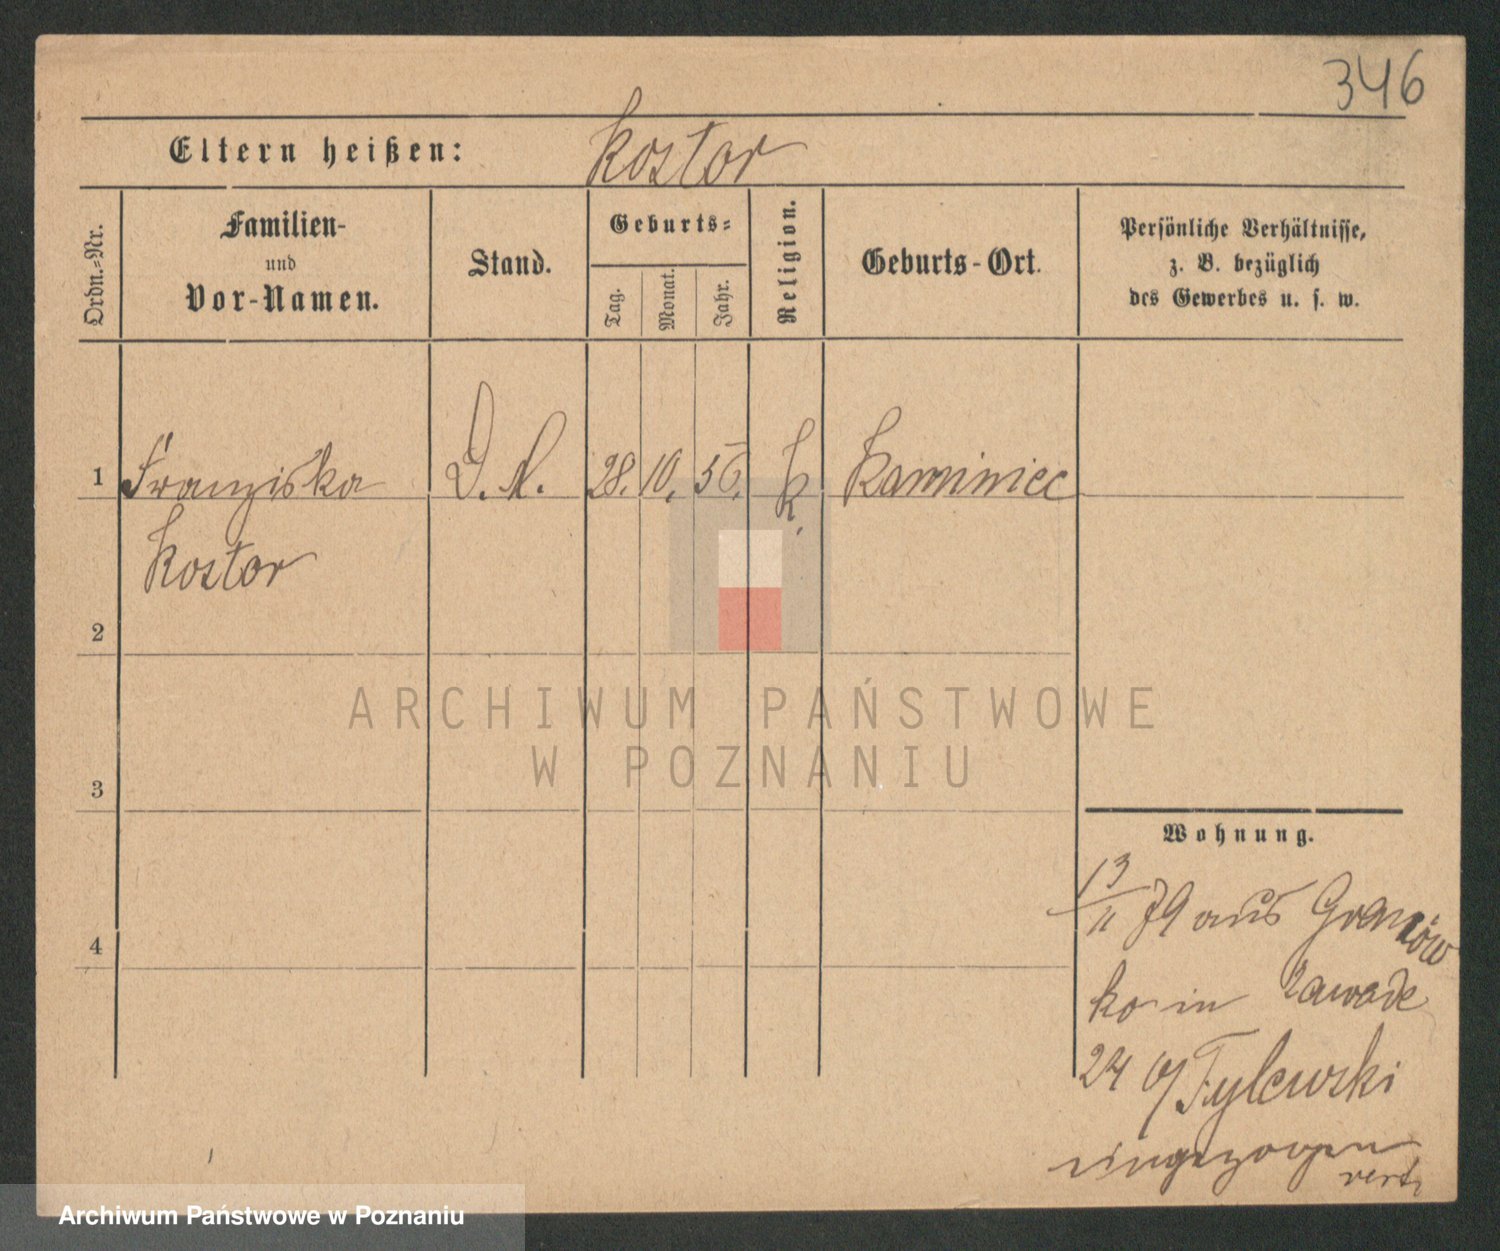 346
Eltern heißen: Kostor
Ordn.-Nr.
Familien-
und
Vor-Namen.
Stand.
Geburts-
Tag.
Monat.
Jahr.
Religion.
Geburts-Ort.
Persönliche Verhältnisse,
z. B. bezüglich
des Gewerbes u. s. w.
1 Franziska D. M. 28. 10. 56. k. Kaminiec
Kostor
2
ARCHIWUM PAŃSTWOWE
W POZNANIU
3
Wohnung.
13/11 79 aus Gronów
4
ko in Zawade
24 Tylewski
eingezogen
Archiwum Państwowe w Poznaniu